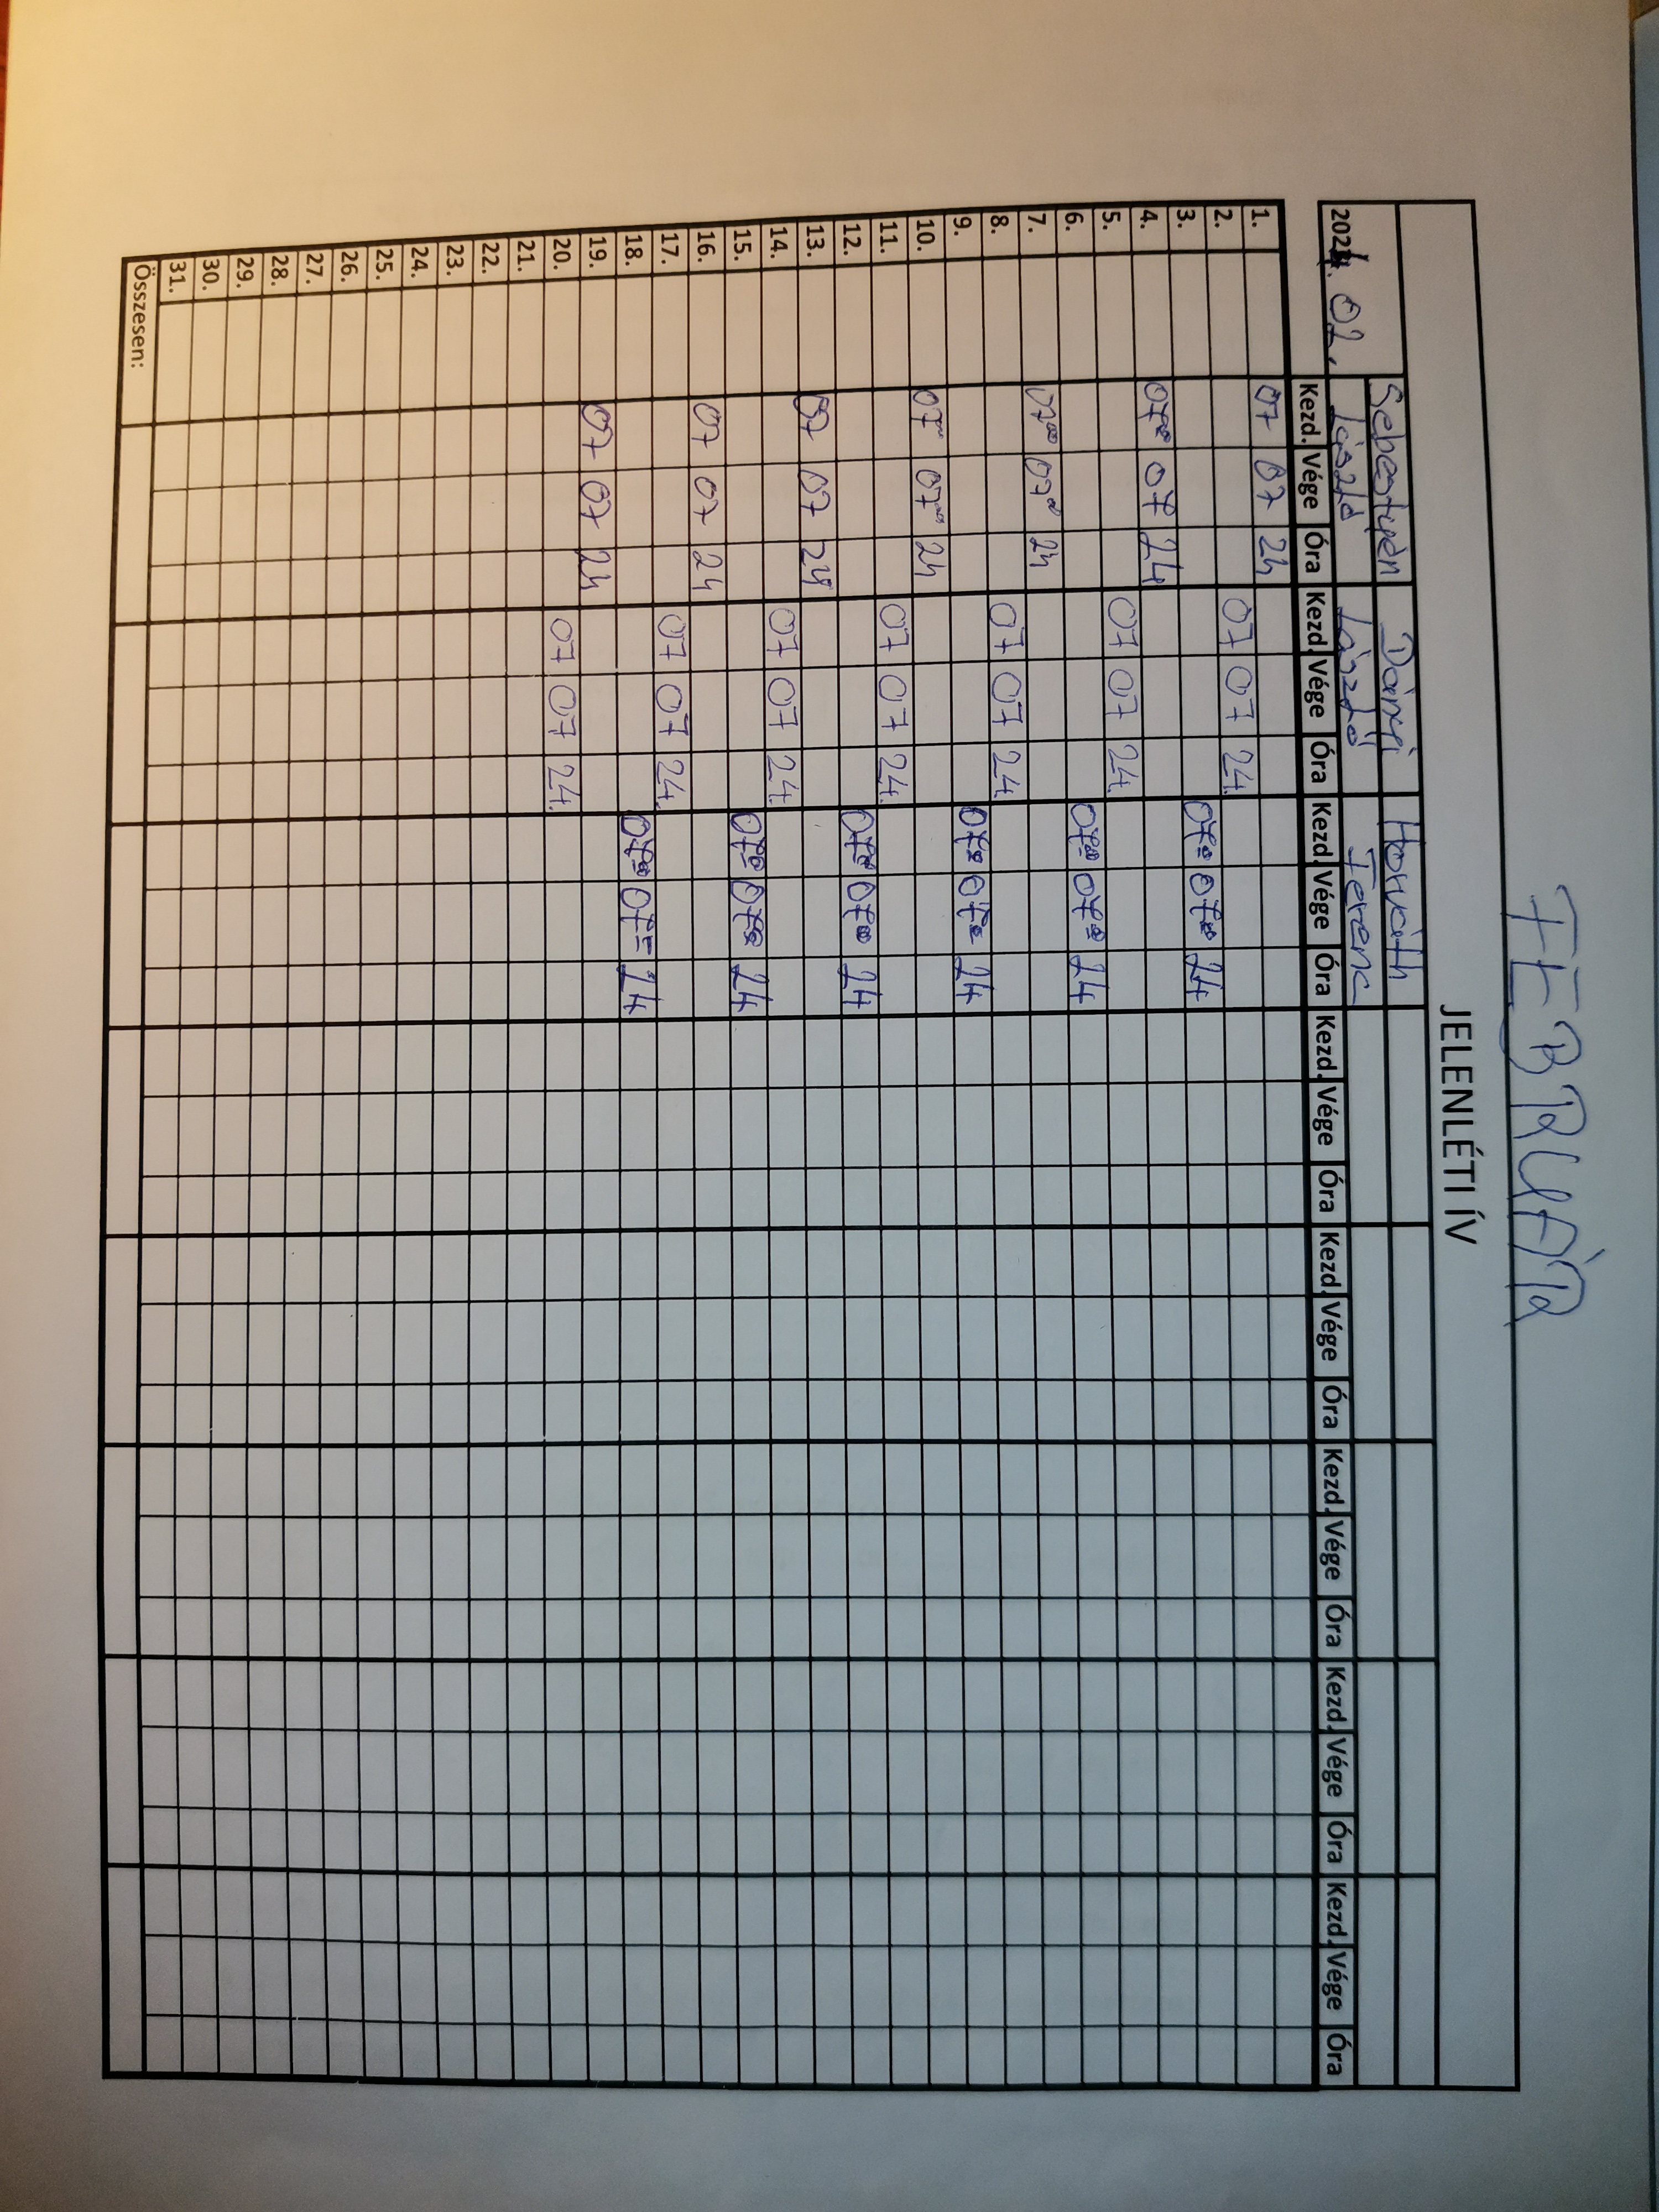 FEBRUÁR
JELENLÉTI ÍV
Sebestyén Dányi Horváth
2021. 02. László László Ferenc
Kezd. Vége Óra Kezd. Vége Óra Kezd. Vége Óra Kezd. Vége Óra Kezd. Vége Óra Kezd. Vége Óra Kezd. Vége Óra Kezd. Vége Óra
1. 07 07 24
2. 07 07 24.
3. 07 00 07 00 24
4. 07 00 07 24
5. 07 07 24.
6. 07 00 07 00 24
7. 07 00 07 00 24
8. 07 07 24.
9. 07 00 07 00 24
10. 07 00 07 00 24
11. 07 07 24.
12. 07 00 07 00 24
13. 07 07 24
14. 07 07 24.
15. 07 00 07 00 24
16. 07 07 24
17. 07 07 24.
18. 07 00 07 00 24
19. 07 07 24
20. 07 07 24.
21.
22.
23.
24.
25.
26.
27.
28.
29.
30.
31.
Összesen: